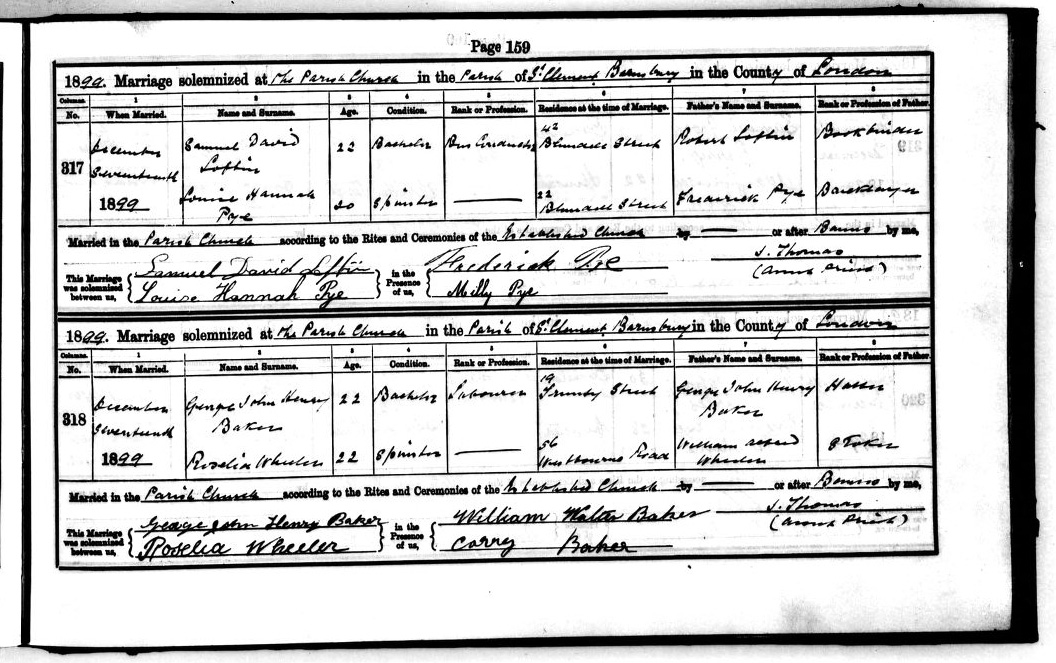 Page 159
1899. Marriage solemnized at The Parish Church in the Parish of St Clement Barnsbury in the County of London
Columns. 1 2 3 4 5 6 7 8
No. When Married. Name and Surname. Age. Condition. Rank or Profession. Residence at the time of Marriage. Father's Name and Surname. Rank or Profession of Father.
317
December Seventeenth 1899
Samuel David Loftin 22 Bachelor Bus Conductor 42 Blundell Street Robert Loftin Bookbinder
Louise Hannah Pye 20 Spinster — 22 Blundell Street Frederick Pye
Married in the Parish Church according to the Rites and Ceremonies of the Established Church by — or after Banns by me,
This Marriage was solemnized between us, Samuel David Loftin in the Presence of us, Frederick Pye J. Thomas
Louise Hannah Pye Milly Pye
1899. Marriage solemnized at The Parish Church in the Parish of St Clement Barnsbury in the County of London
Columns. 1 2 3 4 5 6 7 8
No. When Married. Name and Surname. Age. Condition. Rank or Profession. Residence at the time of Marriage. Father's Name and Surname. Rank or Profession of Father.
318
December Seventeenth 1899
George John Henry Baker 22 Bachelor Labourer 19 Street George John Henry Baker
Roselia Wheeler 22 Spinster — 56 Westbourne Road William Alfred Wheeler Stoker
Married in the Parish Church according to the Rites and Ceremonies of the Established Church by — or after Banns by me,
This Marriage was solemnized between us, George John Henry Baker in the Presence of us, William Walter Baker J. Thomas
Roselia Wheeler Carry Baker